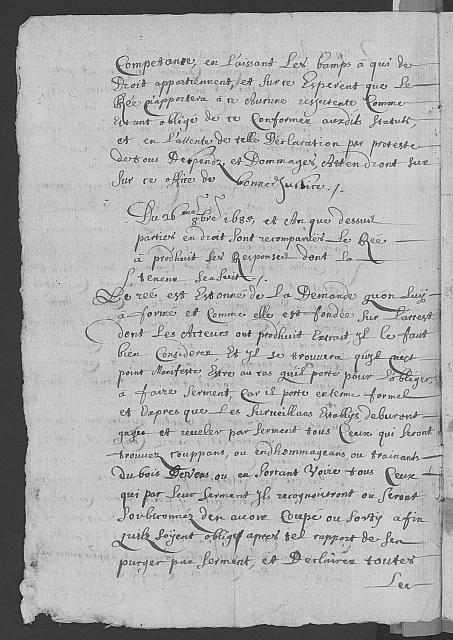 Competante, en laissant les bamps a qui de
Droit appartiennent, et sur ce Esperent que le
Rée n'apportera à ce Aucune ressistente Comme
Estant obligé de ce Conformer ausdit Statuts,
et en l'attente de telle Déclaration par proteste
de tous Despendz et Dommages Attendront sur
sur ce office de bonne Justice ./.
Du 26me 9bre 1685, et An que dessus
parties en droit sont recomparues le Rée
à produit les Responses dont la
teneur sensuit /.
Le rée est Estonné de La Demande qu'on luÿ
à formé et Comme elle est fondée sur l'arrest
dont les Acteurs ont produit Extrait Jl le faut
bien Considerer, Et Jl se trouvera qu'jl n'est
point Manifeste Estre au cas qu'il porte pour l'obliger
à faire Serment, Car il porte en terme formel
et Expres que les Surveillans Establÿs deburont
gager et reveler par Serment tous Ceux qui seront
trouvez Couppans, ou endhommageans ou trainants
du bois Devens ou en Sortant Voire tous Ceux
qui par leur Serment Jl recognoitront ou seront
Soubconnez d'en avoir Coupé ou sorty afin
qu'ilz soÿent obligés apres tel rapport de s'en
purger par Serment et Declairer toutes
les